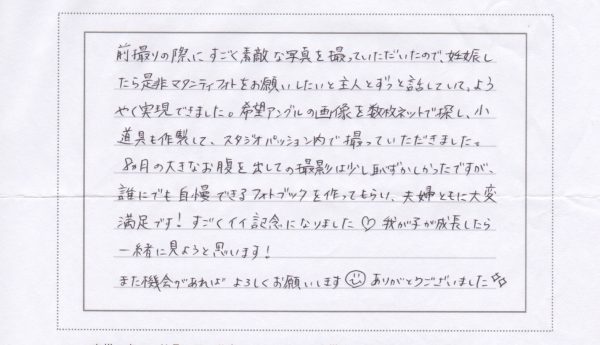 前撮りの際にすごく素敵な写真を撮っていただいたので、妊娠し
たら是非マタニティフォトをお願いしたいと主人とずっと話していて、よう
やく実現できました。希望アングルの画像を数枚ネットで探し、小
道具も作製して、スタジオパッション内で撮っていただきました。
8ヵ月の大きなお腹を出しての撮影は少し恥ずかしかったですが、
誰にでも自慢できるフォトブックを作ってもらい、夫婦ともに大変
満足です!すごくイイ記念になりました♡ 我が子が成長したら
一緒に見ようと思います!
また機会があれば よろしくお願いします☺ ありがとうございました